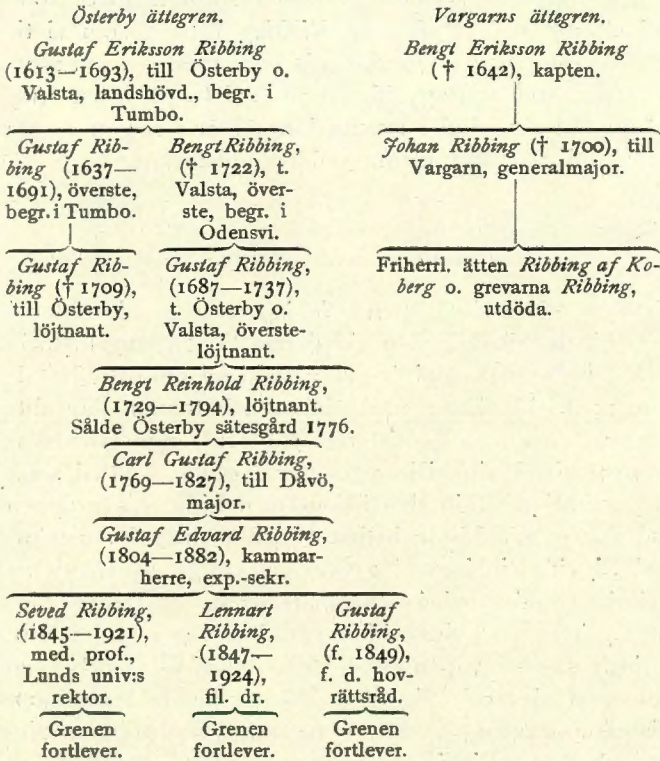 Österby ättegren.
Gustaf Eriksson Ribbing
(1613—1693), till Österby o.
Valsta, landshövd., begr. i
Tumbo.
Gustaf Rib-
bing (1637—
1691), överste,
begr. i Tumbo.
Bengt Ribbing,
(† 1722), t.
Valsta, över-
ste, begr. i
Odensvi.
Gustaf Rib-
bing († 1709),
till Österby,
löjtnant.
Gustaf Ribbing,
(1687—1737),
t. Österby o.
Valsta, överste-
löjtnant.
Bengt Reinhold Ribbing,
(1729—1794), löjtnant.
Sålde Österby sätesgård 1776.
Carl Gustaf Ribbing,
(1769—1827), till Dåvö,
major.
Gustaf Edvard Ribbing,
(1804—1882), kammar-
herre, exp.-sekr.
Seved Ribbing,
(1845—1921),
med. prof.,
Lunds univ:s
rektor.
Grenen
fortlever.
Lennart
Ribbing,
(1847—
1924),
fil. dr.
Grenen
fortlever.
Gustaf
Ribbing,
(f. 1849),
f. d. hov-
rättsråd.
Grenen
fortlever.
Vargarns ättegren.
Bengt Eriksson Ribbing
(† 1642), kapten.
Johan Ribbing († 1700), till
Vargarn, generalmajor.
Friherrl. ätten Ribbing af Ko-
berg o. grevarna Ribbing,
utdöda.